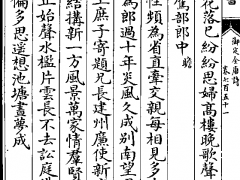 御定全唐詩
卷七百五十一
花落已紛紛思婦高樓晚歌聲
駕部郎中
性頻為省直牽交親每相見多
為郎過十年炎風久成別南望
上庶子寄題兄長建州廉使新
結搆新一方風景萬家情羣賢
正始聲水檻片雲長不去訟庭
偏多思遥想池塘晝夢成